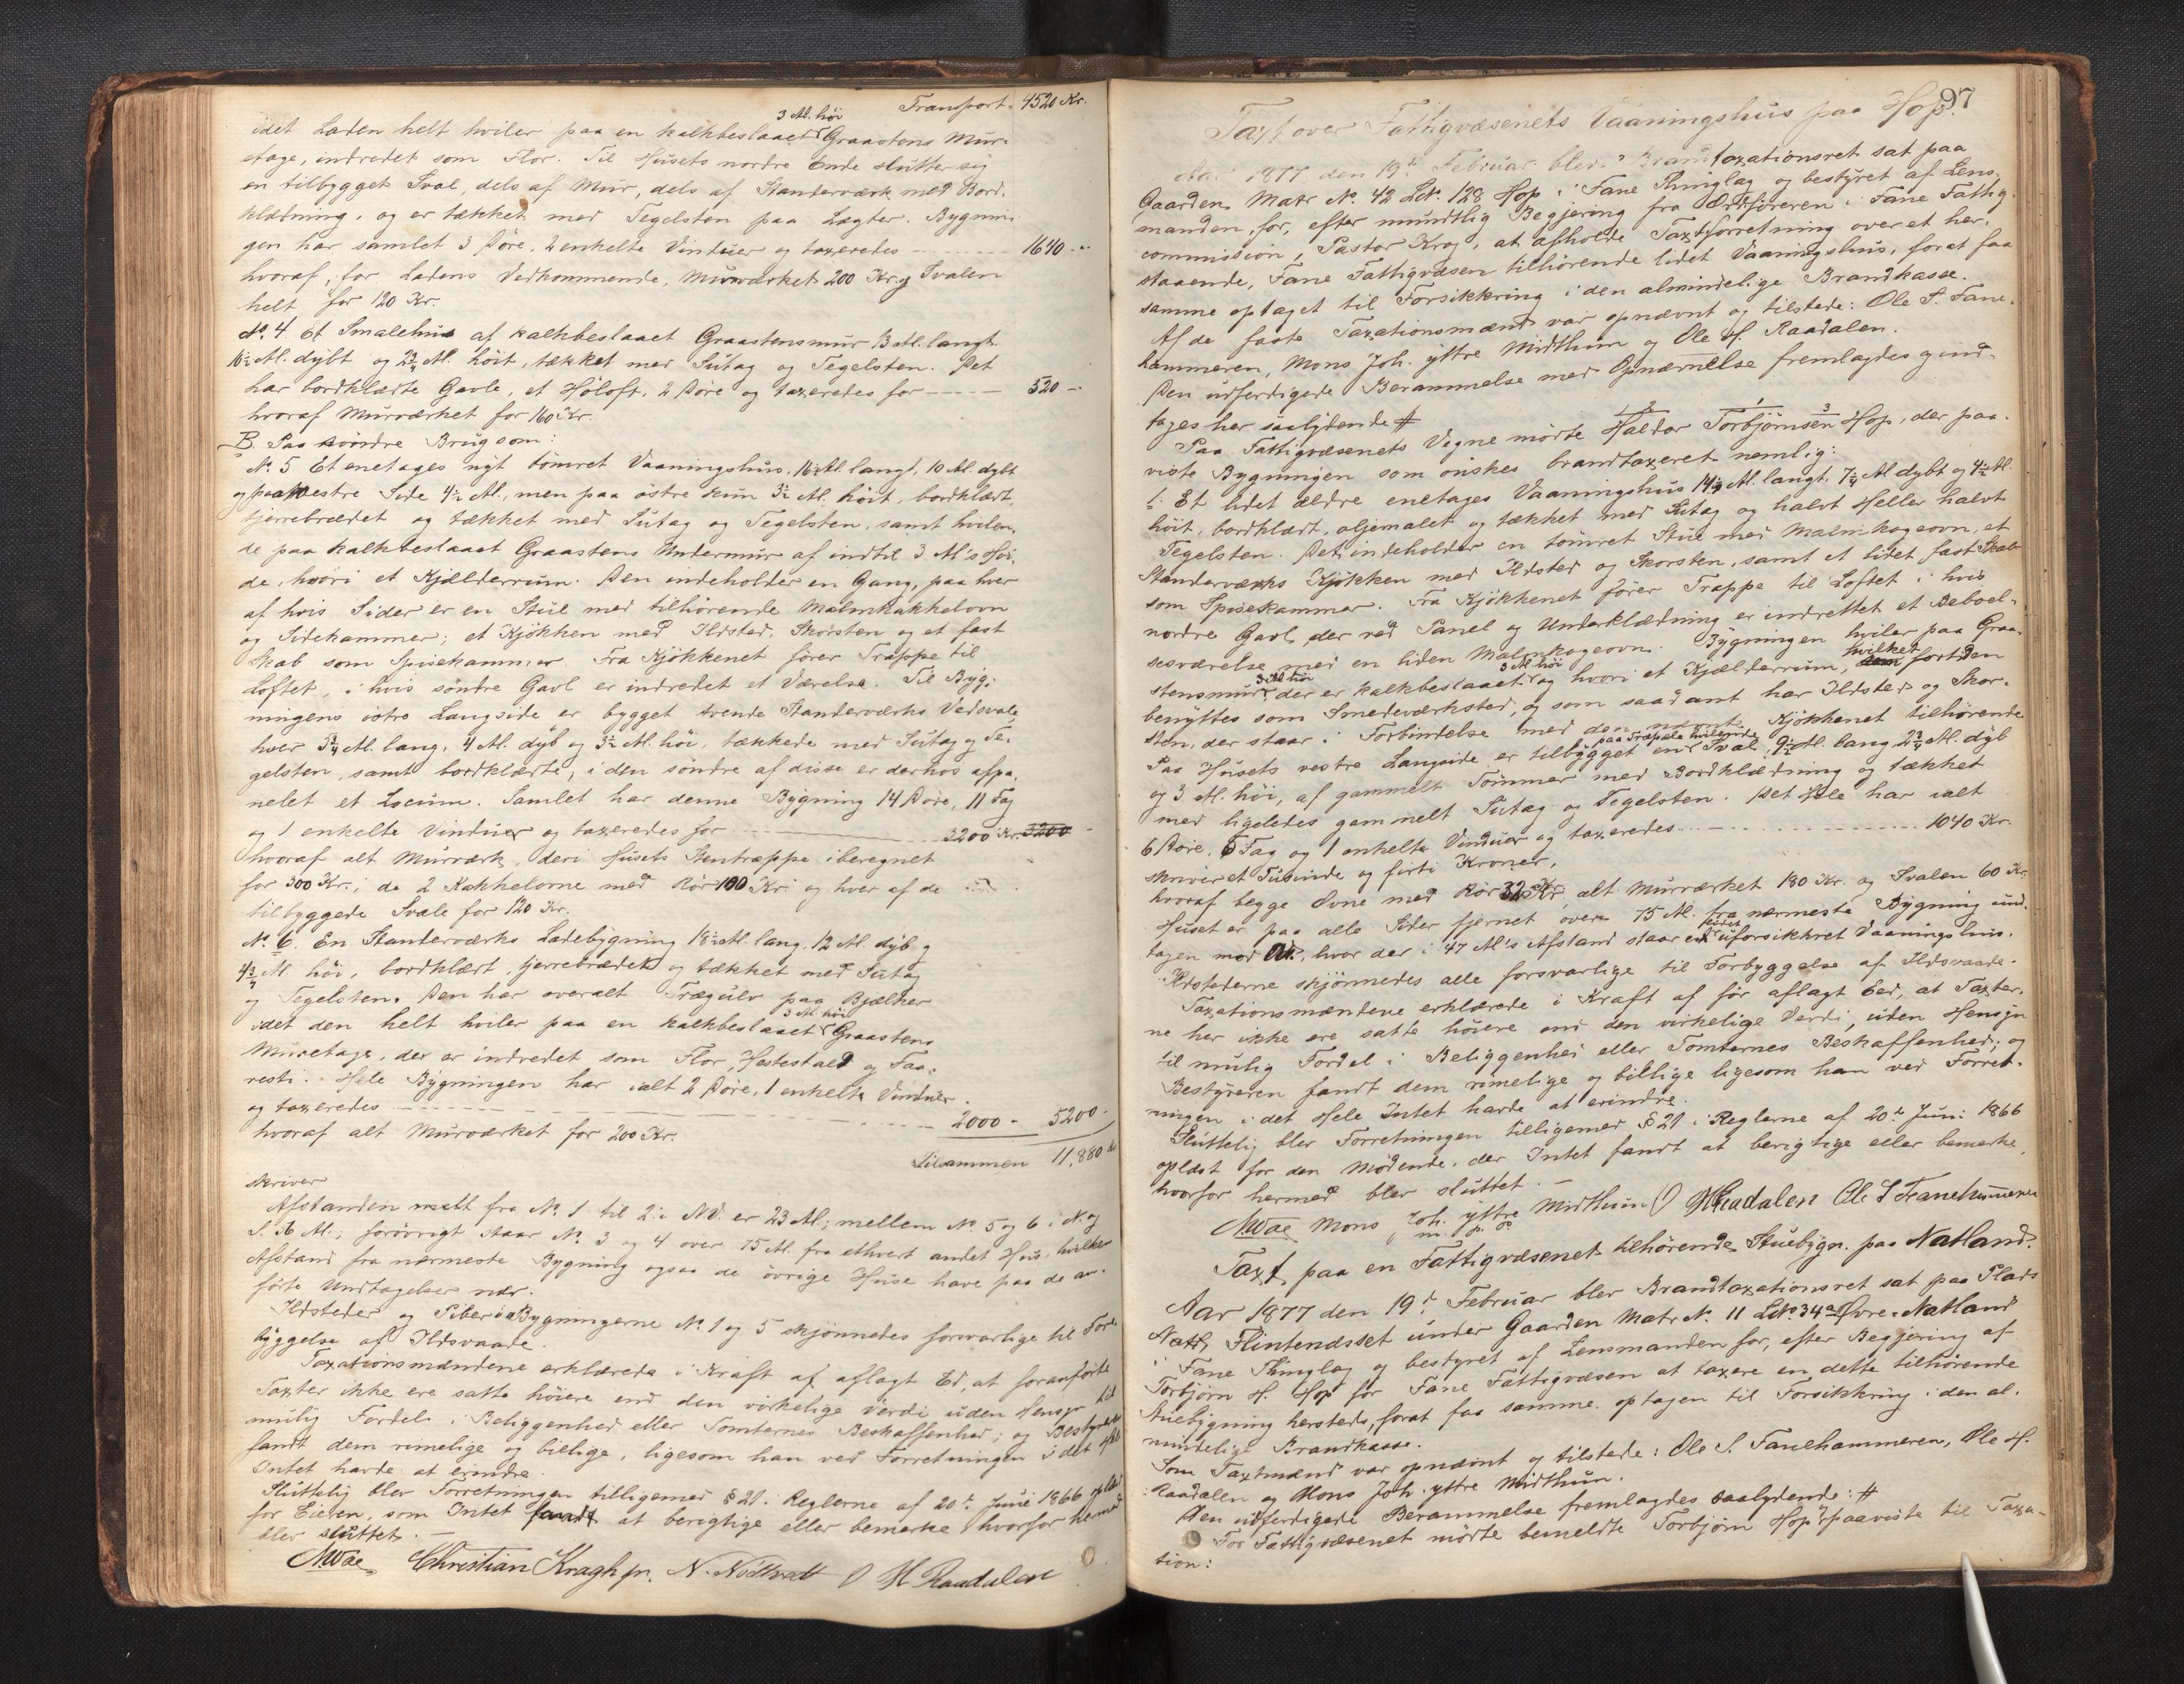 Transport. 4520 Kr.
3 Al. höi
idet Laden helt hviler paa en kalkbeslaaet Graastens Mur-
etage, indredet som Flor. Til Husets nordre Ende slutter sig
en tilbygget Sval, dels af Mur, dels af Standerværk med Bord-
klædning, og er tækket med Tegelsten paa Lægter. Bygnin-
gen har samlet 3 Døre, 2 enkelte Vinduer og taxeredes 1640 -
hvoraf, for Ladens Vedkommende, Murværket 200 Kr. og Svalen
helt for 120 Kr.
No. 4 Et Smalehus af kalkbeslaaet Graastensmur 13 Al. langt
10½ Al. dybt og 2¾ Al. höit, tækket med Sutag og Tegelsten. Det
har bordklædte Gavle, et Höloft, 2 Døre og taxeredes for 520 -
hvoraf Murværket for 160 Kr.
B. Paa søndre Brug som:
No. 5 Et enetages nyt tömret Vaaningshus, 16½ Al. langt, 10 Al. dybt
og paa vestre Side 4½ Al., men paa östre kun 3½ Al. höit, bordklædt,
tjærebrædet og tækket med Sutag og Tegelsten, samt hvilen-
de paa kalkbeslaaet Graastens Undermur af indtil 3 Al's Høi-
de, hvori et Kjælderrum. Den indeholder en Gang, paa hver
af hvis Sider er en Stue med tilhörende Malmkakkelovn
og Sidekammer; et Kjökken med Ildsted, Skorsten og et fast
Skab som Spisekammer. Fra Kjökkenet förer Trappe til
Loftet, i hvis söndre Gavl er indredet et Værelse. Til Byg-
ningens östre Langside er bygget tvende Standerværks Vedsvale,
hver 3¾ Al. lang, 4 Al. dyb og 3½ Al. höi, tækkede med Sutag og Te-
gelsten, samt bordklædte; i den söndre af disse er derhos afpa-
nelet et Locum. Samlet har denne Bygning 14 Døre, 11 Fag
og 1 enkelte Vinduer og taxeredes for 3200 Kr. 3200 -
hvoraf alt Murværk, deri Husets Stentrappe iberegnet
for 300 Kr.; de 2 Kakkelovne med Rör 100 Kr. og hver af de
tilbyggede Svale for 120 Kr.
No. 6. En Standerværks Ladebygning 18½ Al. lang, 12 Al. dyb og
4¾ Al. höi, bordklædt, tjærebrædet og tækket med Sutag
og Tegelsten. Den har overalt Trægulv paa Bjælker
3 Al. höi
idet den helt hviler paa en kalkbeslaaet Graastens
Muretage, der er indredet som Flor, Hestestald og Faa-
resti. Hele Bygningen har ialt 2 Døre, 1 enkelte Vinduer
og taxeredes 2000 - 5200 -
hvoraf alt Murværket for 200 Kr.
Tilsammen 11,880 Kr
skriver
Afstanden målt fra No. 1 til 2 i NV. er 23 Al.; mellem No. 5 og 6 i N. og
S. 36 Al.; forövrigt staar No. 3 og 4 over 75 Al. fra ethvert andet Hus, hvilken
Afstand fra nærmeste Bygning ogsaa de övrige Huse have paa de an-
förte Undtagelser nær.
Ildsteder og Piber i Bygningerne No. 1 og 5 skjønnedes forsvarlige til Fore-
byggelse af Ildsvaade.
Taxationsmændene erklærede i Kraft af aflagt Ed, at foranförte
Taxter ikke ere satte höiere end den virkelige Værdi uden Hensyn til
mulig Fordel i Beliggenhed eller Tomternes Beskaffenhed; og Bestyreren
fandt dem rimelige og billige, ligesom han ved Forretningen i det Hele
Intet havde at erindre.
Sluttelig blev Forretningen tilligemed § 21. Reglerne af 20de Juni 1866 oplæst
for Eieren, som Intet fandt at berigtige eller bemærke, hvorfor hermed
blev sluttet. -
AWae Christian Kragh jr. N. Nödtvedt O H Raadalen
97
Taxt over Fattigvæsenets Vaaningshus paa Hop.
Aar 1877 den 19de Februar blev Brandtaxationsret sat paa
Gaarden Matr No. 42 Lb. 128 Hop i Fane Thinglag og bestyret af Lens-
manden for, efter mundtlig Begjæring fra Ordføreren i Fane Fattig-
commission, Pastor Krog, at afholde Taxtforretning over et her-
staaende, Fane Fattigvæsen tilhörende lidet Vaaningshus, forat faa
samme optaget til Forsikkring i den almindelige Brandkasse.
Af de faste Taxationsmænd var opnævnt og tilstede: Ole S. Fane-
hammeren, Mons Joh. yttre Midthun og Ole H. Raadalen.
Den udferdigede Berammelse med Opnævnelse fremlagdes og ind-
tages her saalydende #
2 1 3
Paa Fattigvæsenets Vegne mödte Haldor Torbjörnsen Hop, der paa-
viste Bygningen som önskes brandtaxeret nemlig:
1. Et lidet ældre enetages Vaaningshus 14½ Al. langt, 7¾ Al dybt og 4½ Al.
höit, bordklædt, oljemalet og tækket med Sutag og halvt Heller halvt
Tegelsten. Det indeholder en tömret Stue med Malmkogeovn, et
Standerværks Kjökken med Ildsted og Skorsten, samt et lidet fast Skab
som Spisekammer. Fra Kjökkenet förer Trappe til Loftet i hvis
nordre Gavl der ved Panel og Underklædning er indrettet et Beboel-
sesværelse med en liden Malmkogeovn. Bygningen hviler paa Graa-
3 Al. höi 3 Al. höi hvilket
stensmur der er kalkbeslaaet og hvori et Kjælderrum, fortiden
benyttes som Smedeværksted, og som saadant har Ildsted og Skor-
sten, der staar i Forbindelse med den nævnte Kjökkenet tilhørende
paa Træpæle hvilende
Paa Husets vestre Langside er tilbygget en Sval, 9½ Al. lang 2¾ Al. dyb
og 3 Al. höi, af gammelt Tömmer med Bordklædning og tækket
med ligeledes gammelt Sutag og Tegelsten. Det Hele har ialt
6 Døre, 6 Fag og 1 enkelte Vinduer og taxeredes 1040 Kr.
skriver et Tusinde og firti Kroner,
hvoraf begge Ovne med Rör 32 Kr, alt Murværket 180 Kr. og Svalen 60 Kr.
Huset er paa alle Sider fjernet over 75 Al. fra nærmeste Bygning und-
tagen mod , hvor der i 47 Al's Afstand staar et uforsikkret Vaaningshus.
Ildstederne skjönnedes alle forsvarlige til Forbyggelse af Ildsvaade.
Taxationsmændene erklærede i Kraft af för aflagt Eed, at Taxter-
ne her ikke ere satte höiere end den virkelige Verdi, uden Hensyn
til mulig Fordel i Beliggenhed eller Tomternes Beskaffenhed; og
Bestyreren fandt dem rimelige og billige ligesom han ved Forret-
ningen i det Hele Intet havde at erindre.
Sluttelig blev Forretningen tilligemed § 21 i Reglerne af 20de Juni 1866
oplæst for den Mødende, der Intet fandt at berigtige eller bemærke,
hvorfor hermed blev sluttet. -
AWae Mons Joh. yttre Midthun O H Raadalen Ole S Fanehammeren
m. p. P.
Taxt paa en Fattigvæsenet tilhörende Stuebygn. paa Natland.
Aar 1877 den 19de Februar blev Brandtaxationsret sat paa Plads
Flintenæsset under Gaarden Matr No. 11 Lb. 34a Øvre Natland
i Fane Thinglag og bestyret af Lensmanden for, efter Begjæring af
Torbjörn H. Hop for Fane Fattigvæsen at taxere en dette tilhörende
Stuebygning hersteds, forat faa samme optagen til Forsikkring i den al-
mindelige Brandkasse.
Som Taxtmænd var opnævnt og tilstede: Ole S. Fanehammeren, Ole H.
Raadalen og Mons Joh. yttre Midthun.
Den udferdigede Berammelse fremlagdes saalydende: #
For Fattigvæsenet mödte bemeldte Torbjörn Hop og paaviste til Taxa-
tion: